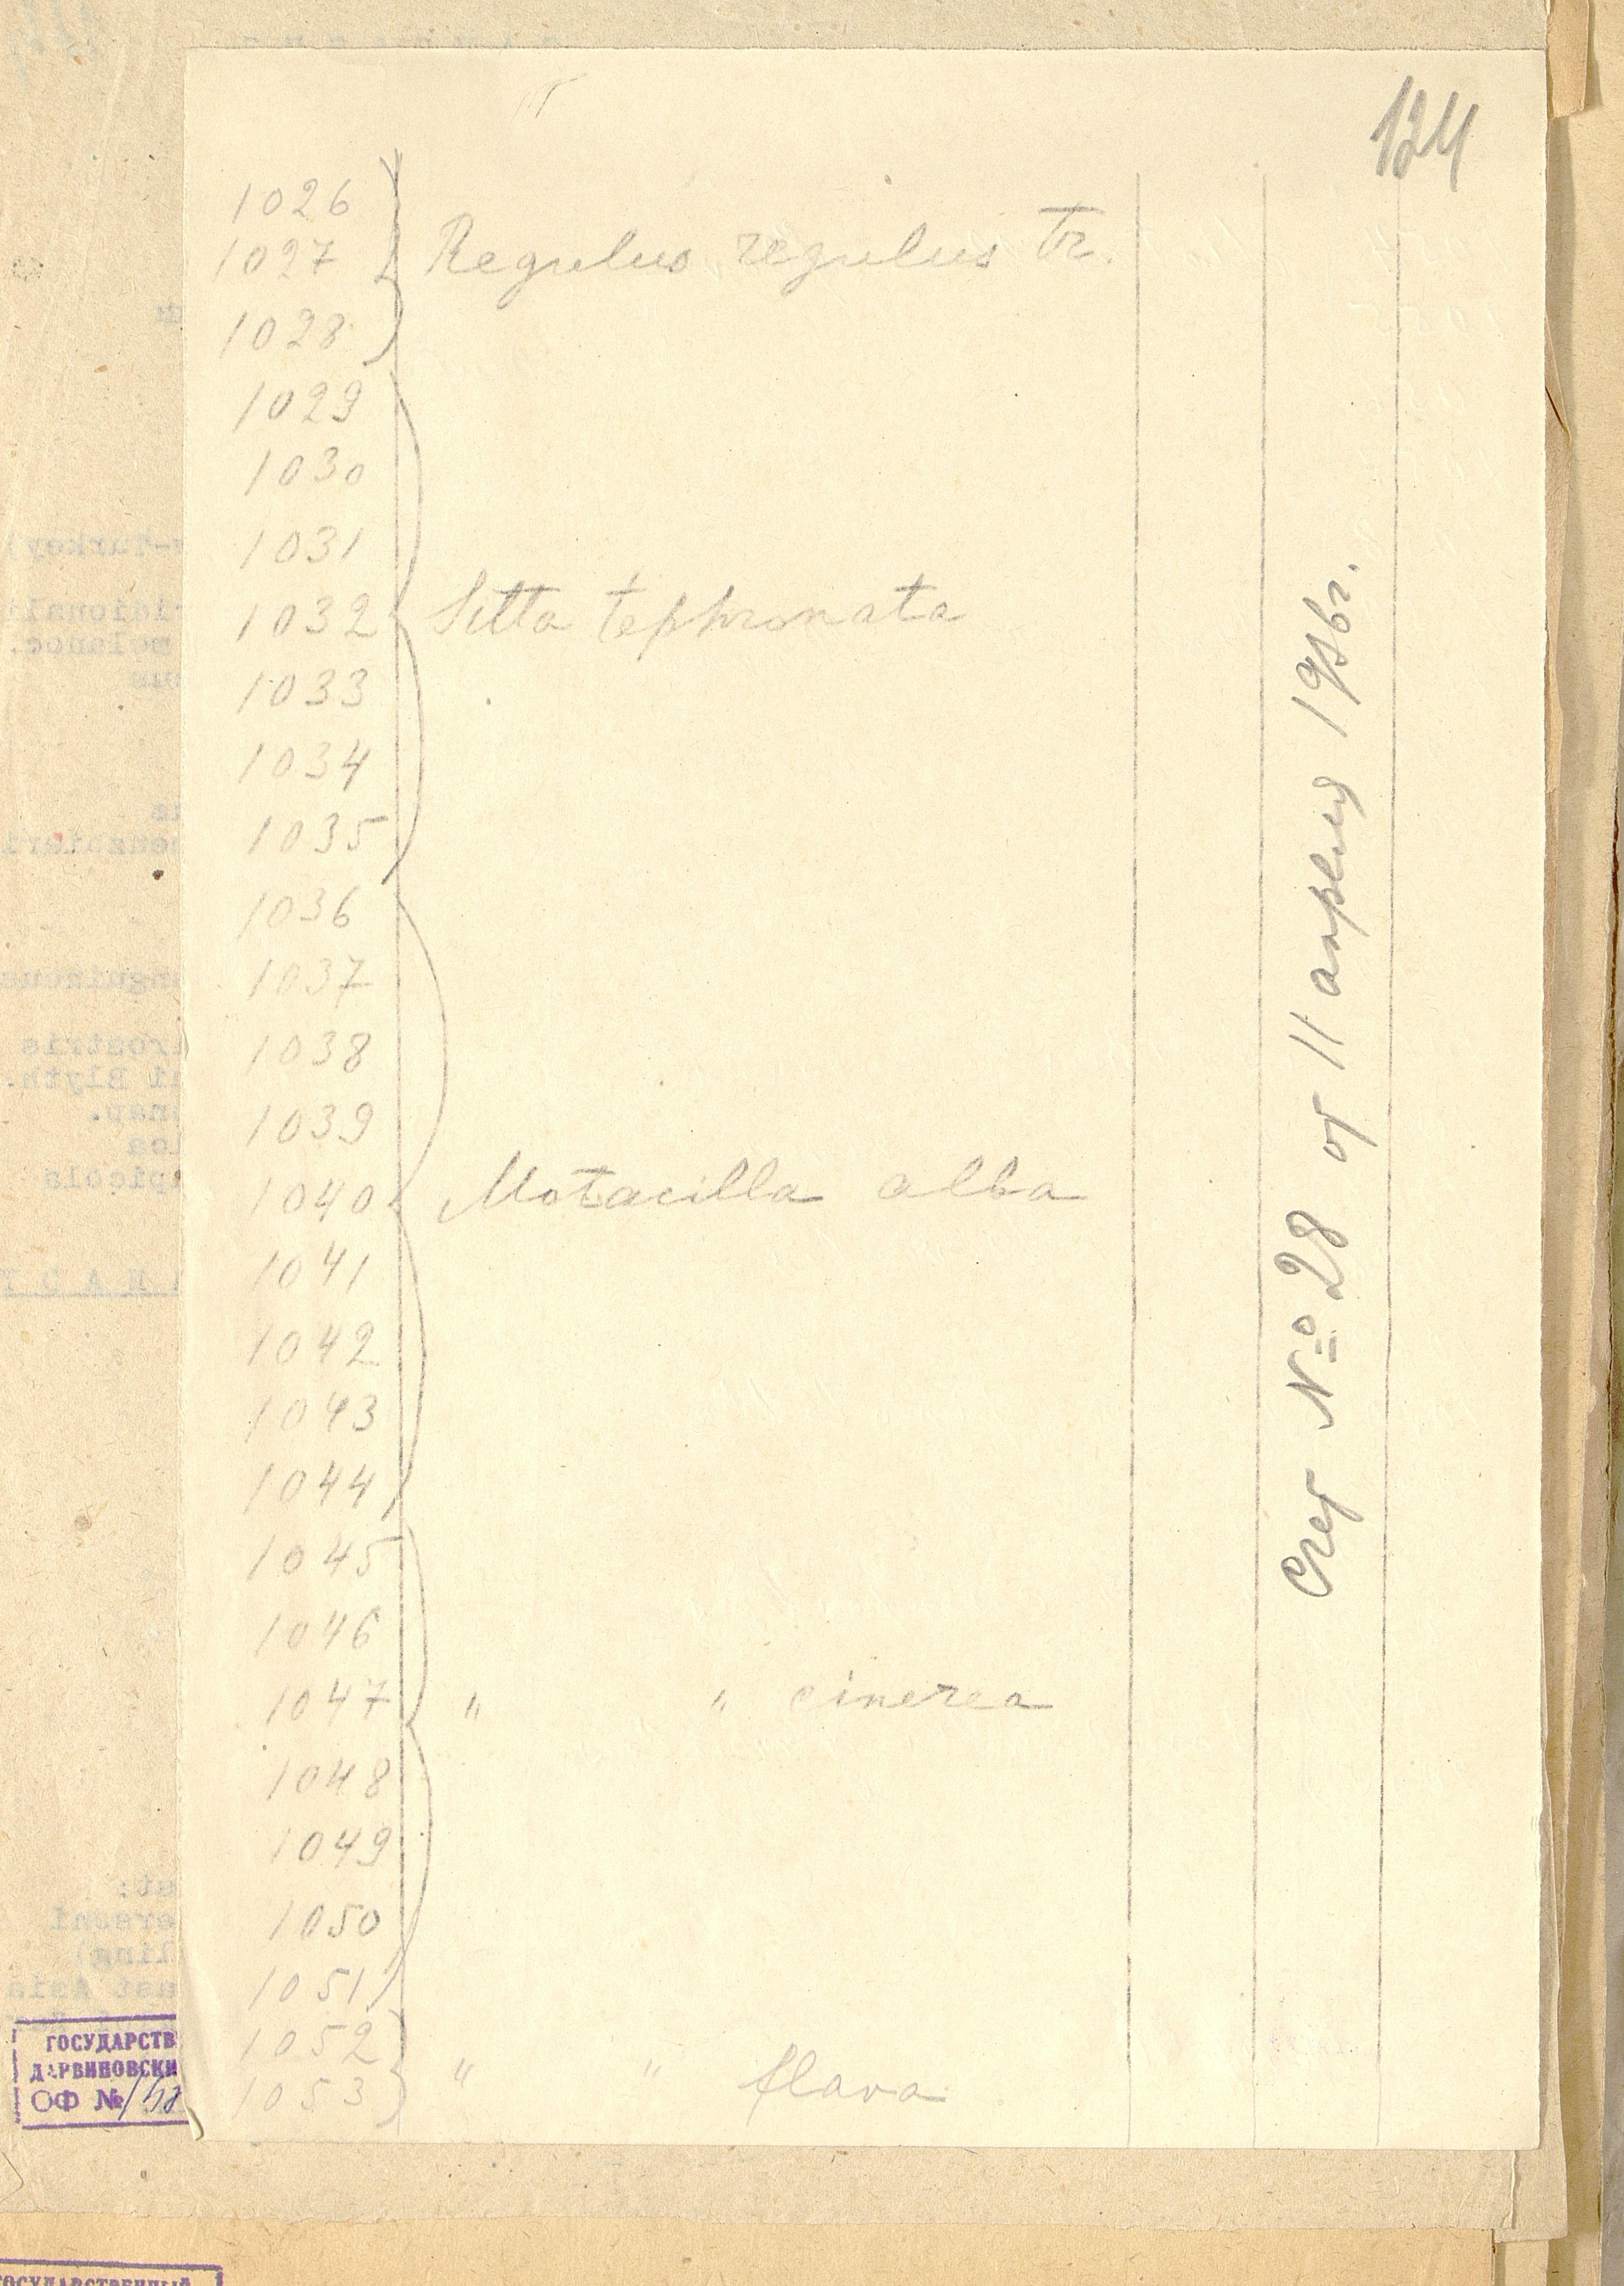 124
1026
1027 Regulus regulus tr.
1028
1029
1030
1031
1032 Sitta tephronata
1033
1034
1035
1036
1037
1038
1039
1040 Motacilla alba
1041
1042
1043
1044
1045
1046
1047 " " cinerea
1048
1049
1050
1051
1052
1053 " " flava
Счет № 28 от 11 апреля 1956г.
ГОСУДАРСТВ
ДАРВИНОВСКИ
ОФ №
ГОСУДАРСТВЕННЫЙ